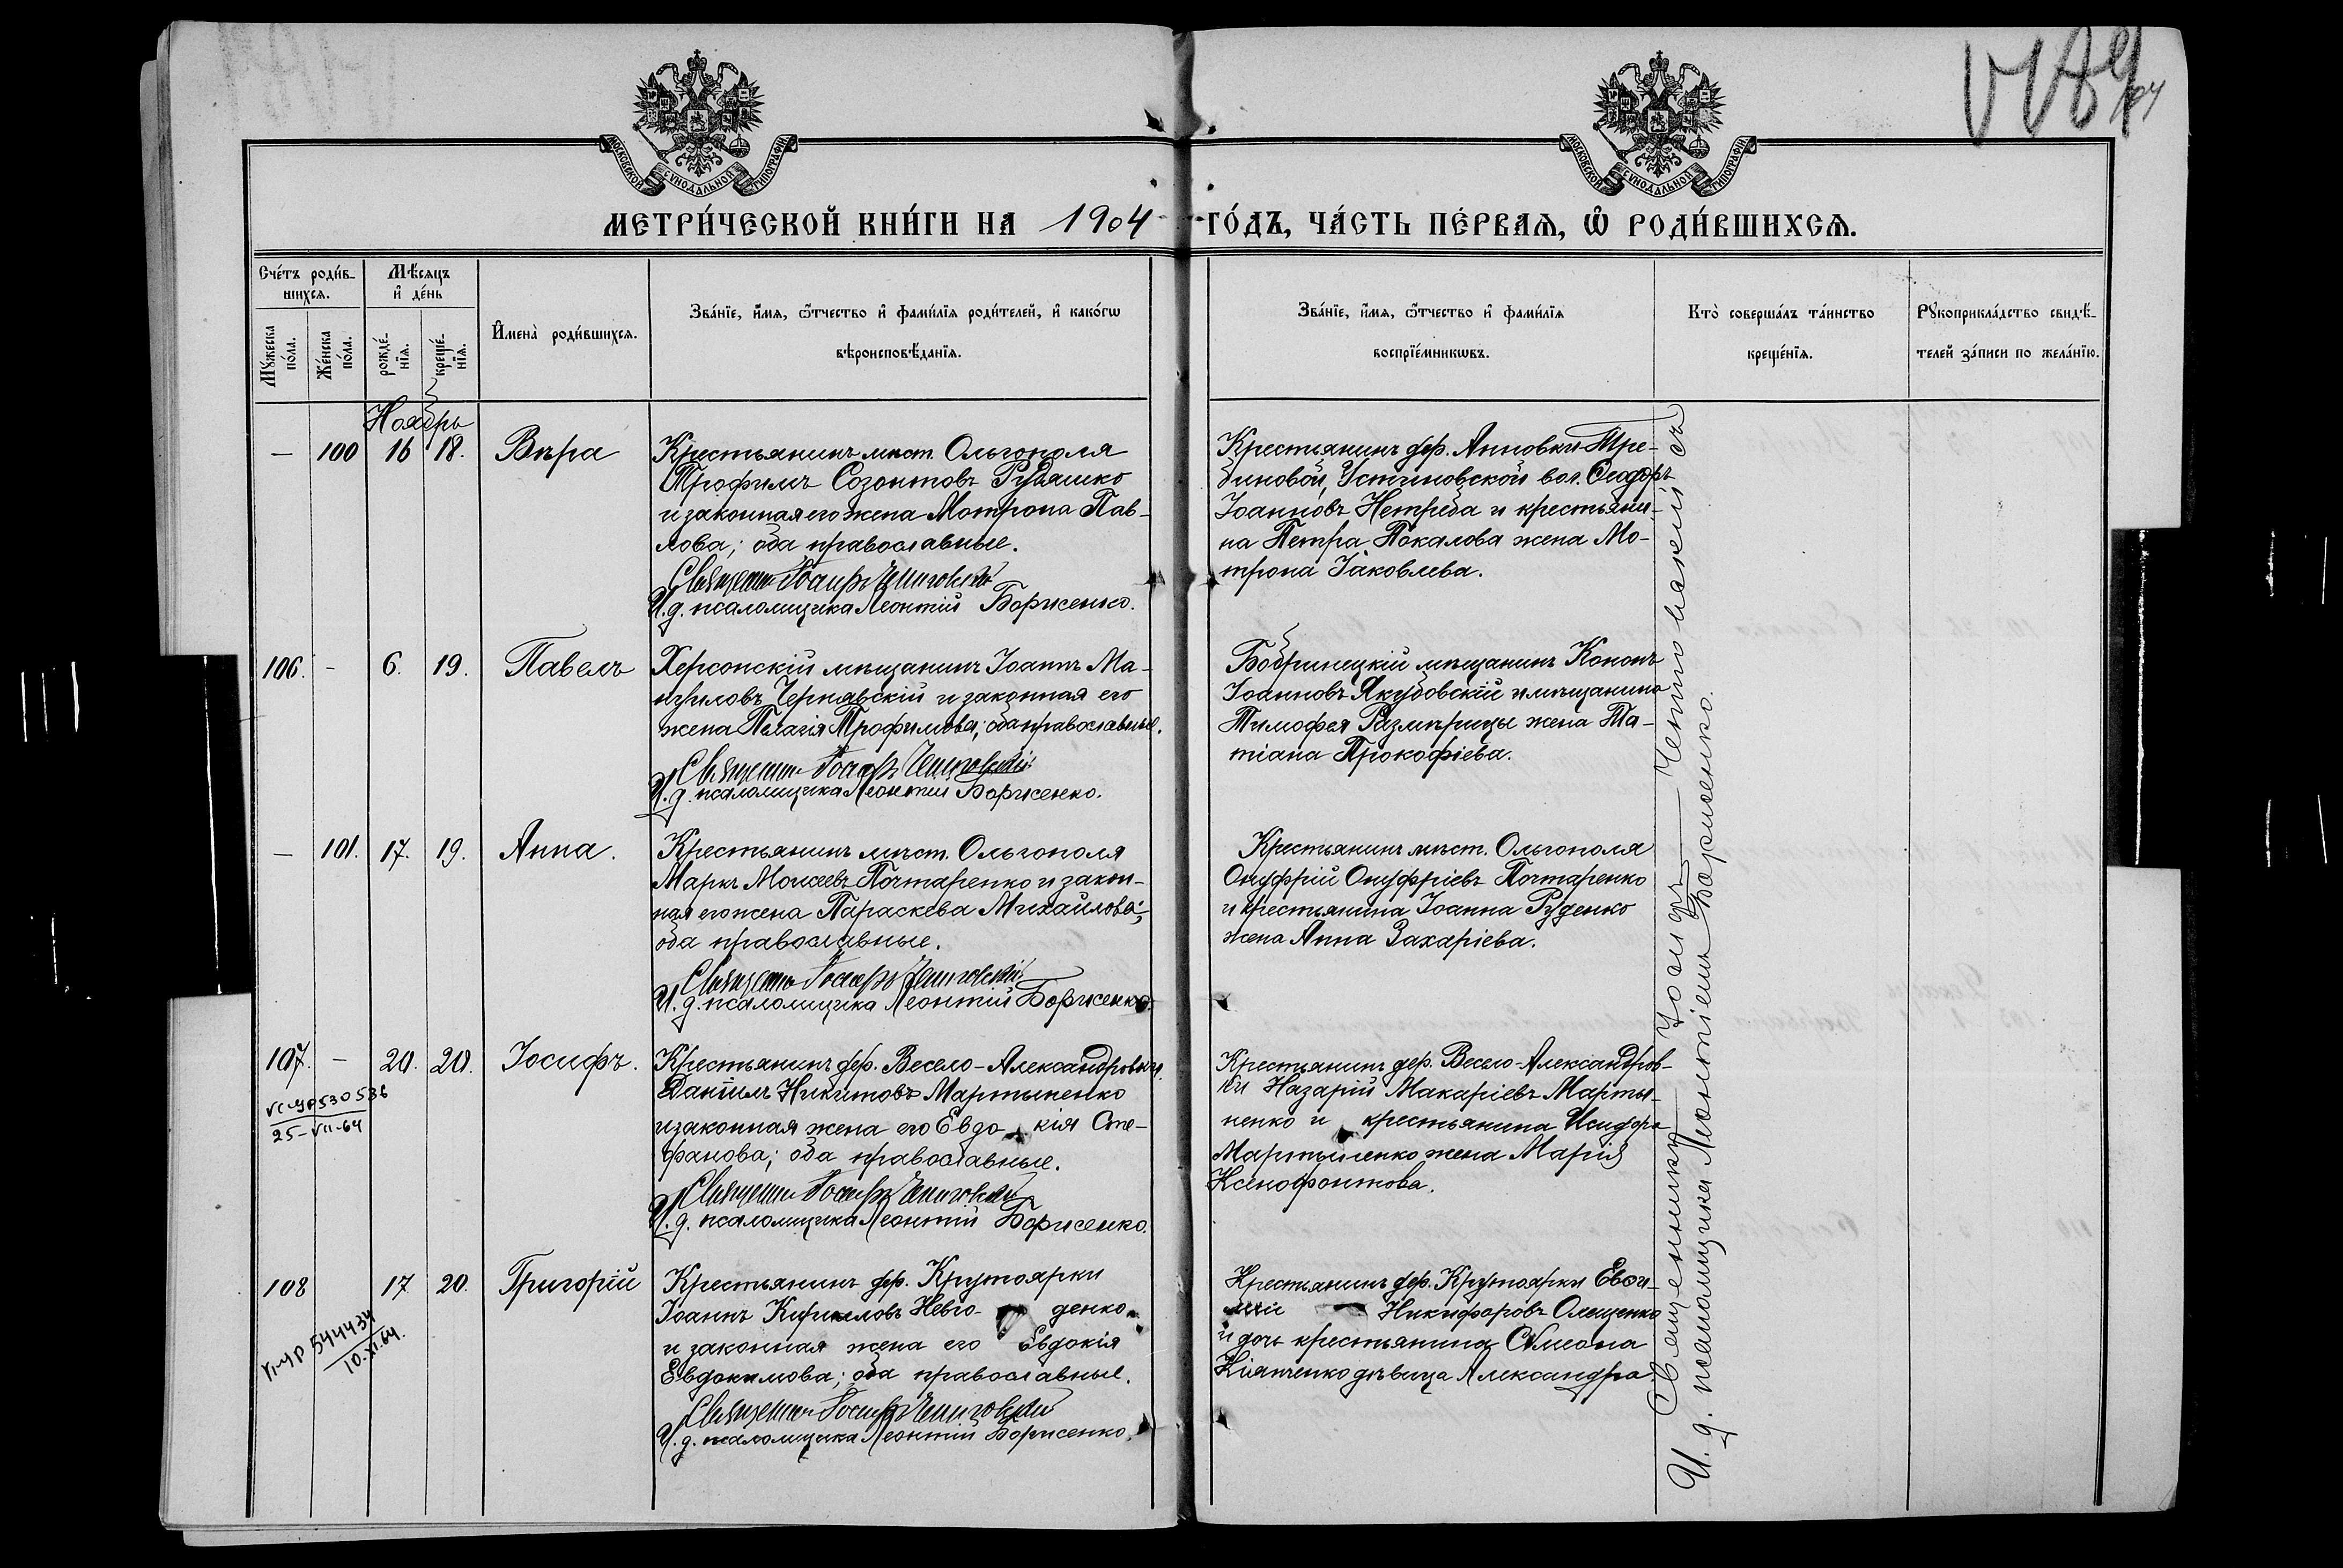 МОСКОВСКОЙ СѴНОДАЛЬНОЙ ТИПОГРАФІИ
МОСКОВСКОЙ СѴНОДАЛЬНОЙ ТИПОГРАФІИ
МЕТРИ́ЧЕСКОЙ КНИ́ГИ НА 1904 ГО́ДЪ, ЧА́СТЬ ПЕ́РВАѦ, Ѽ РОДИ́ВШИХСѦ.
Сче́тъ роди́в-
шихсѧ.
Мꙋ́жеска
по́ла.
Же́нска
по́ла.
Мѣ́сѧцъ
и҆ де́нь
рожде́-
нїѧ.
креще́-
нїѧ.
И҆мена̀ роди́вшихсѧ.
Зва́нїе, и҆́мѧ, ѻ҆́тчество и҆ фами́лїѧ роди́телей, и҆ како́гѡ
вѣроисповѣ́данїѧ.
Зва́нїе, и҆́мѧ, ѻ҆́тчество и҆ фами́лїѧ
воспрїе́мникѡвъ.
Кто̀ соверша́лъ та́инство
креще́нїѧ.
Рꙋкоприкла́дство свидѣ́-
телей за́писи по жела́нїю.
Ноябрь
— 100 16 18. Вѣра
Крестьянинъ мѣст. Ольгополя
Трофимъ Созонтовъ Рубашко
и законная его жена Мотрона Пав-
лова; оба православные.
Священн. Іосифъ
И. д. псаломщика Леонтій Борисенко.
Крестьянинъ дер. Анновки-Тре-
биновой, Устиновской вол. Ѳеодоръ
Іоанновъ Нетреба и крестьяни-
на Петра Покалова жена Мо-
трона Іаковлева.
106. - 6. 19. Павелъ
Херсонскій мѣщанинъ Іоаннъ Ма-
нуиловъ Чернявскій и законная его
жена Пелагія Трофимова; оба православные.
Священн. Іосифъ
И. д. псаломщика Леонтій Борисенко.
Бобринецкій мѣщанинъ Кононъ
Іоанновъ Якубовскій и мѣщанина
Тимофея Размѣрицы жена Та-
тіана Прокофіева.
— 101. 17. 19. Анна.
Крестьянинъ мѣст. Ольгополя
Маркъ Моисеевъ Почтаренко и закон-
ная его жена Параскева Михайлова;
оба православные.
Священн. Іосифъ
И. д. псаломщика Леонтій Борисенко.
Крестьянинъ мѣст. Ольгополя
Онуфрій Онуфріевъ Почтаренко
и крестьянина Іоанна Руденко
жена Анна Захаріева.
107. - 20. 20. Іосифъ.
530536
25-VII-64
Крестьянинъ дер. Весело-Александровки
Даніилъ Никитовъ Мартыненко
и законная жена его Евдокія Сте-
фанова; оба православные.
Священн. Іосифъ
И. д. псаломщика Леонтій Борисенко.
Крестьянинъ дер. Весело-Александров-
ки Назарій Макаріевъ Марты-
ненко и крестьянина Исидора
Мартыненко жена Марія
Ксенофонтова.
108 17 20. Григорій
544434
10.XI.64.
Крестьянинъ дер. Крутоярки
Іоаннъ Кирилловъ Невго- денко
и законная жена его Евдокія
Евдокимова; оба православные.
Священн. Іосифъ
И. д. псаломщика Леонтій Борисенко.
Крестьянинъ дер. Крутоярки Евѳи-
мій Никифоровъ Олещенко
и дочь крестьянина Сѵмеона
Кіянченко дѣвица Александра.
Священникъ Іосифъ съ
И. д. псаломщика Леонтіемъ Борисенко.